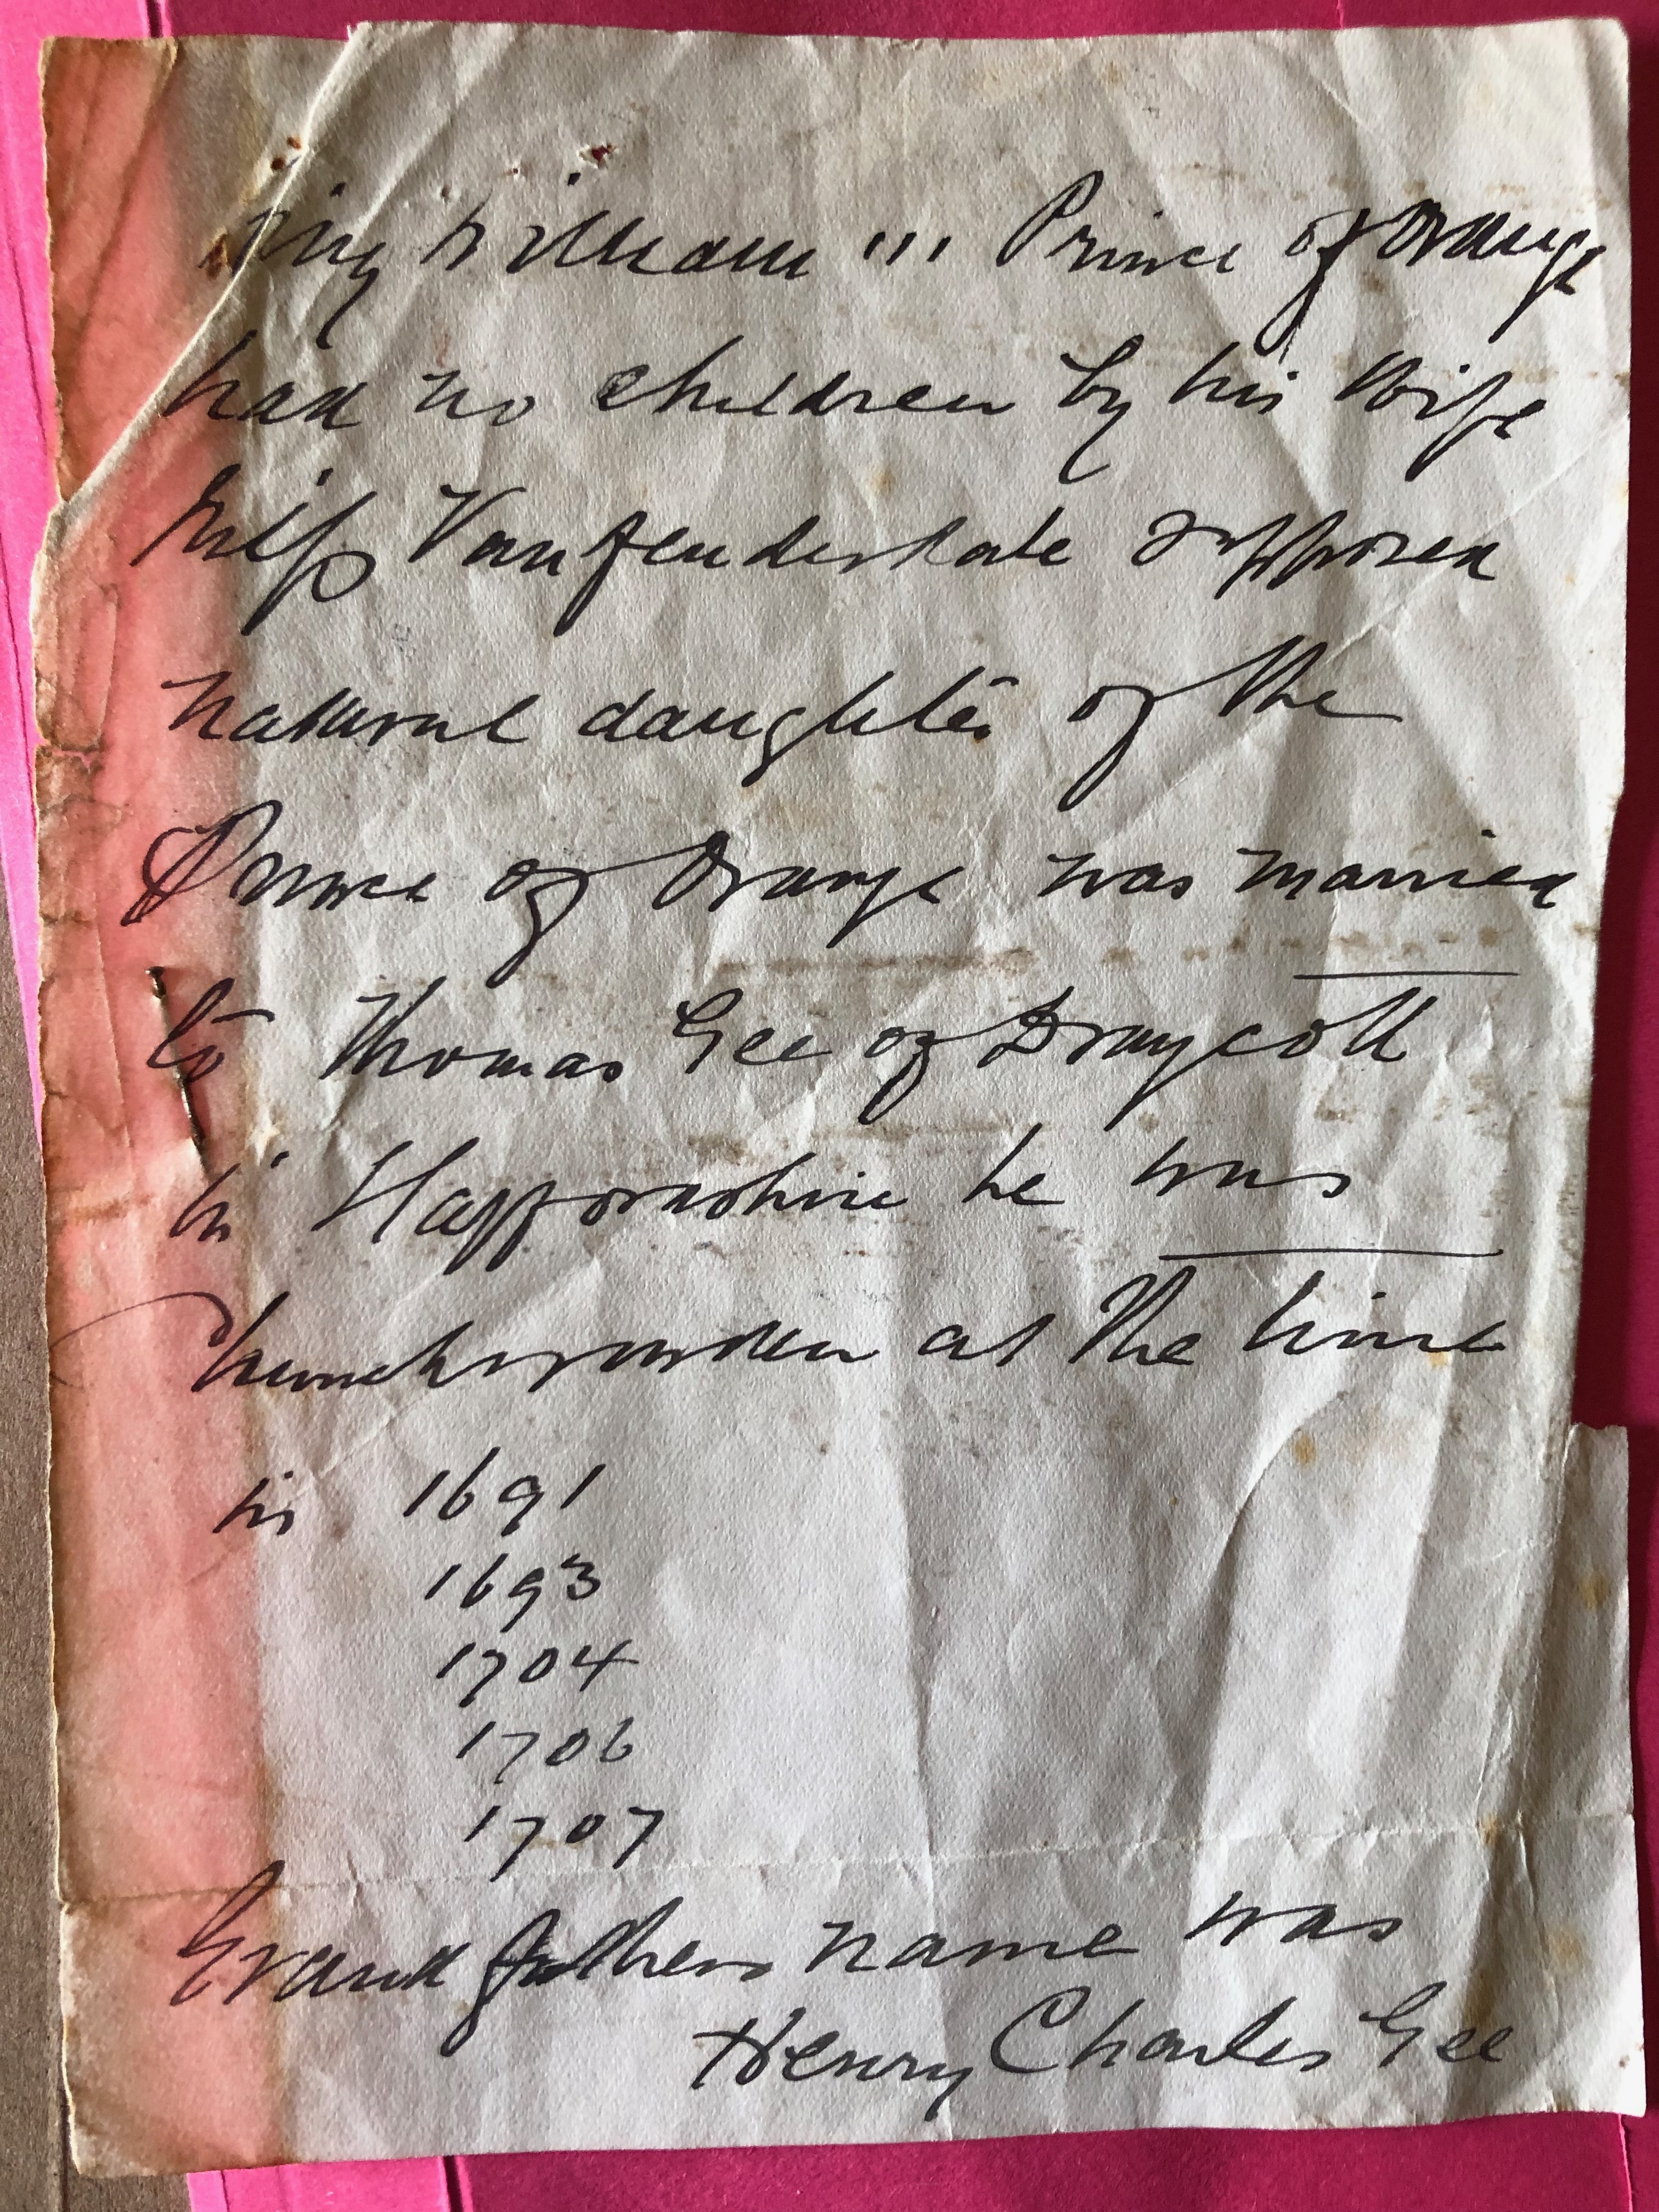 King William III Prince of Orange
had no children by his Wife
Miss Vanfenderkate supposed
natural daughter of the
Prince of Orange was married
to Thomas Gee of Draycott
in Staffordshire he was
Churchwarden at the time
in 1691
1693
1704
1706
1707
Grandfathers name was
Henry Charles Gee